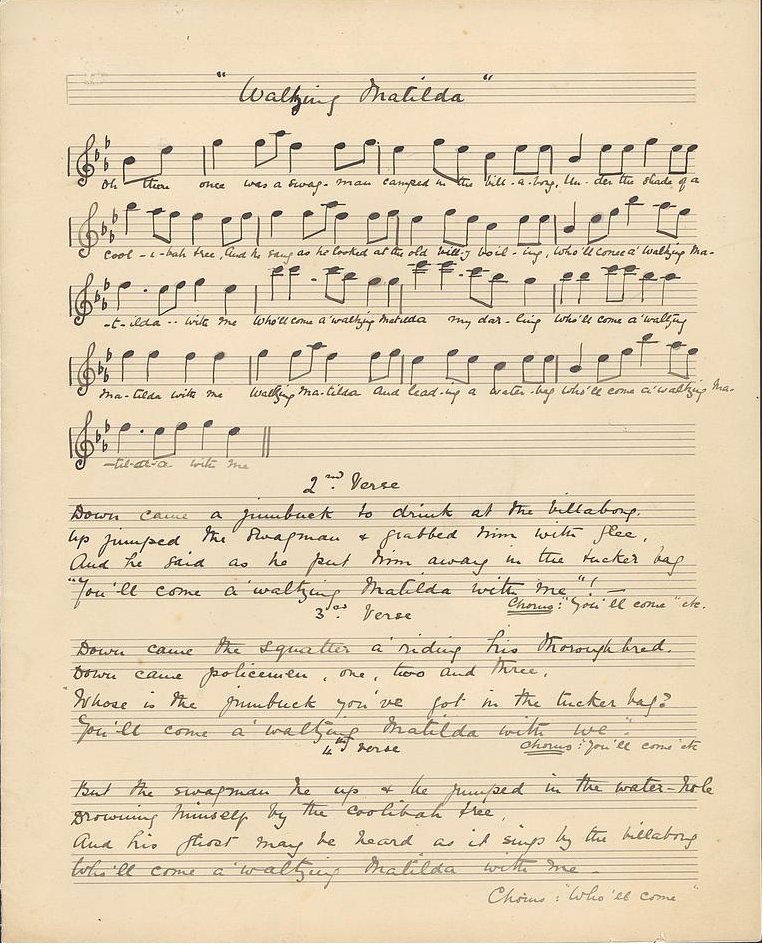 "Waltzing Matilda"
Oh there once was a swag-man camped in the bill-a-bong, Un-der the shade of a
cool-i-bah tree, And he sang as he looked at the old bill-y boil-ing, Who'll come a' waltzing Ma-
-t-ilda-- with me Who'll come a' waltzing Matilda my dar-ling Who'll come a' waltzing
Ma-tilda with me Waltzing Ma-tilda and lead-ing a water-bag who'll come a' waltzing Ma-
-til-da with me
2nd. Verse
Down came a jumbuck to drink at the billabong.
Up jumped the swagman & grabbed him with glee.
And he said as he put him away in the tucker bag
"You'll come a' waltzing Matilda with me"! —
Chorus: "You'll come" etc.
3rd. Verse
Down came the squatter a' riding his thoroughbred.
Down came policemen, one, two and three.
"Whose is the jumbuck you've got in the tucker bag?
You'll come a' waltzing Matilda with we".
Chorus: "You'll come" etc
4th verse
But the swagman he up & he jumped in the water-hole
Drowning himself by the coolibah tree.
And his ghost may be heard as it sings by the billabong
Who'll come a' waltzing Matilda with me.
Chorus: "Who'll come"